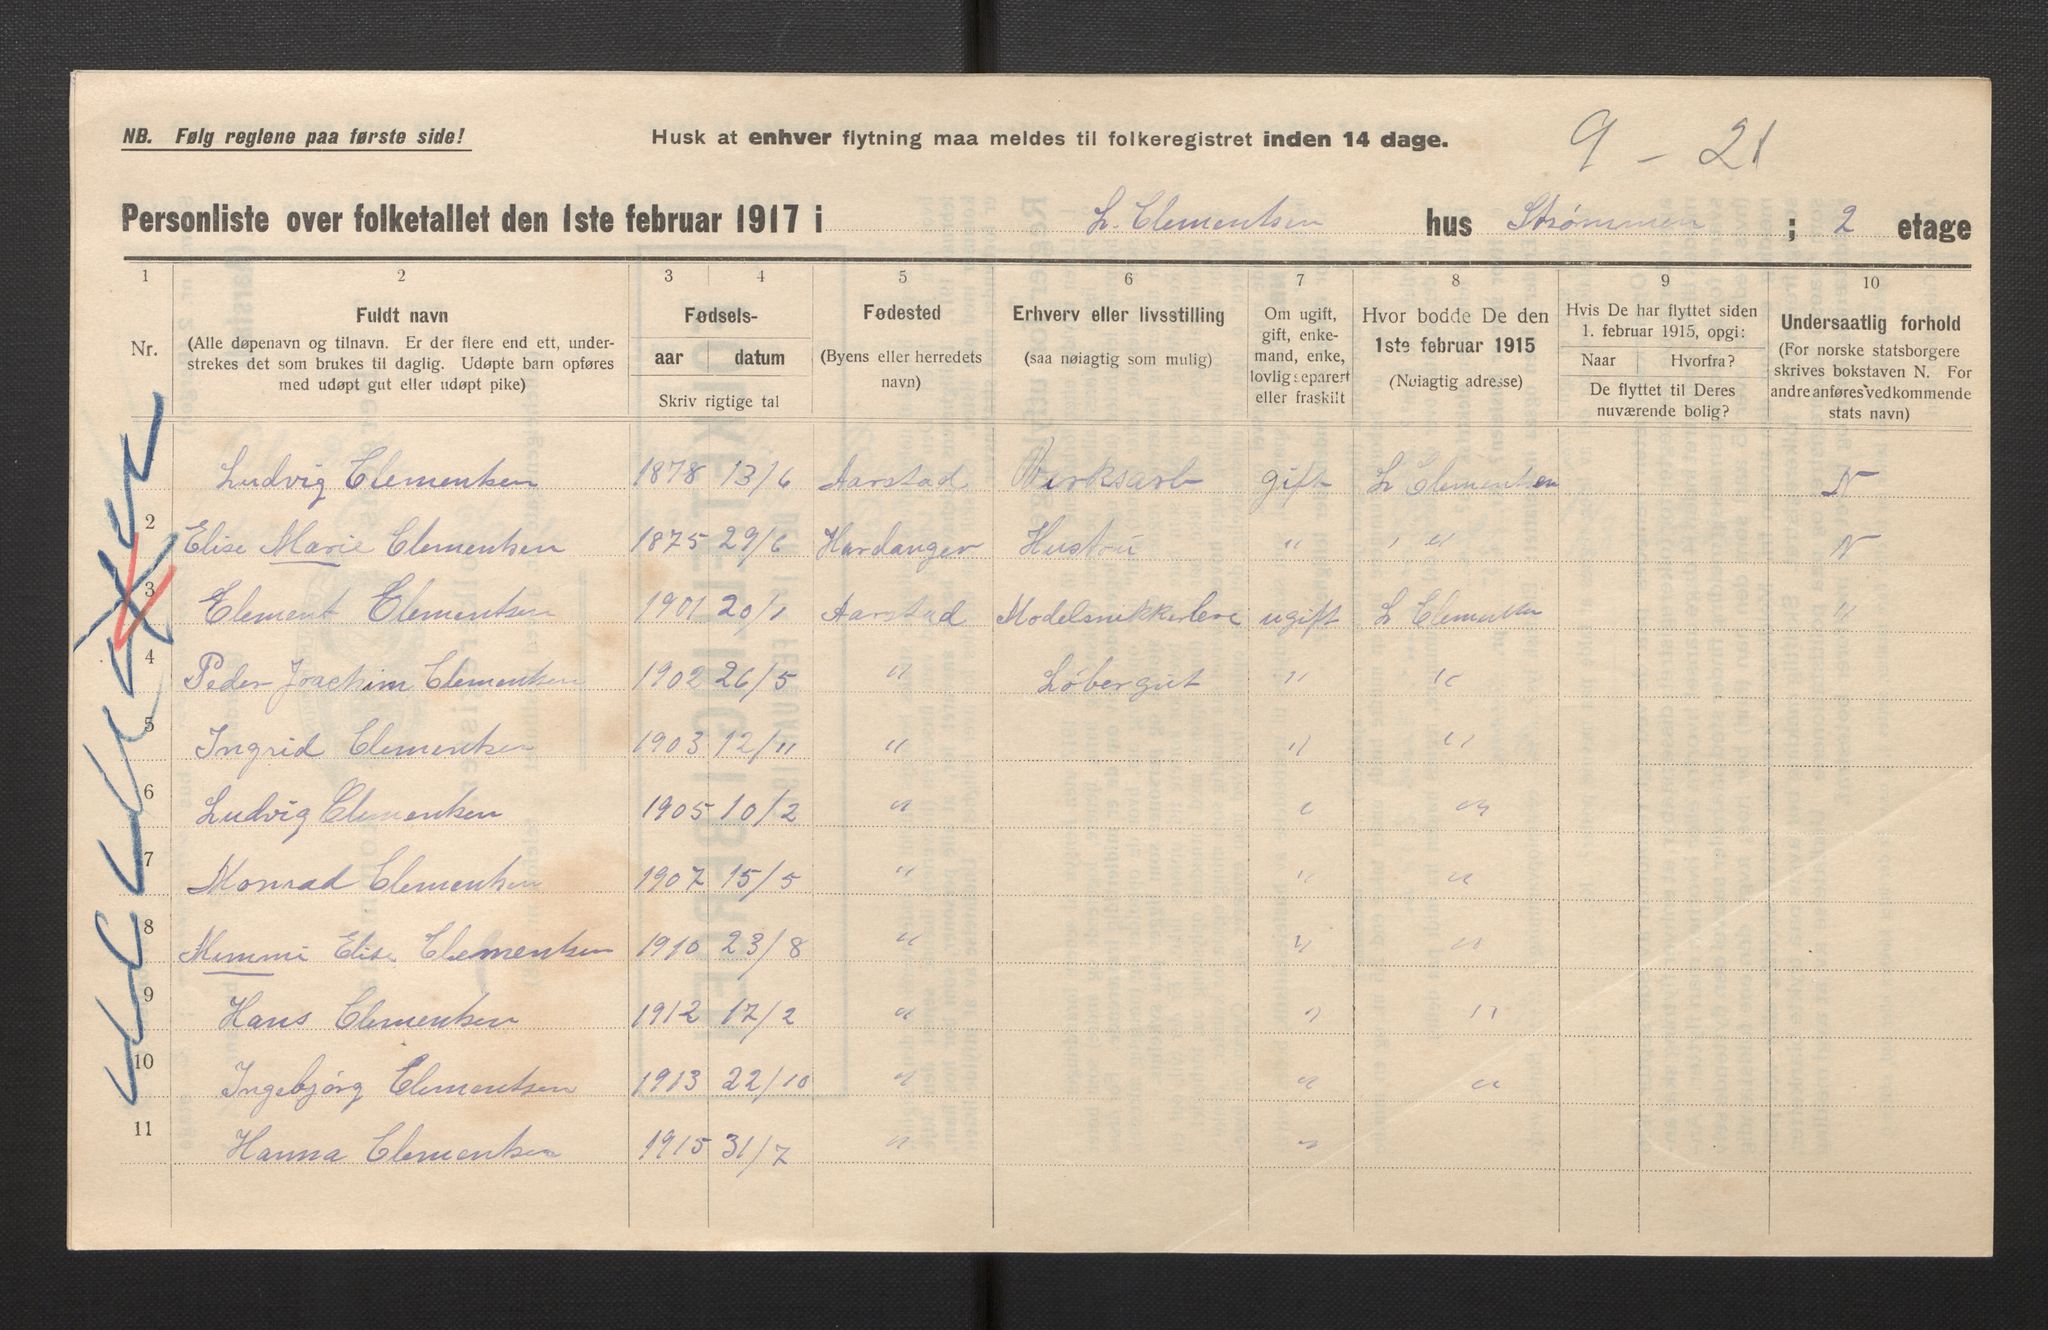 NB. Følg reglene paa første side!
Husk at enhver flytning maa meldes til folkeregistret inden 14 dage.
9 - 21
Personliste over folketallet den 1ste februar 1917 i L. Clementsen hus Strømmen ; 2 etage
1 2 3 4 5 6 7 8 9 10
Nr.
Fuldt navn
(Alle døpenavn og tilnavn. Er der flere end ett, under-
strekes det som brukes til daglig. Udøpte barn opføres
med udøpt gut eller udøpt pike)
Fødsels-
aar datum
Skriv rigtige tal
Fødested
(Byens eller herredets
navn)
Erhverv eller livsstilling
(saa nøiagtig som mulig)
Om ugift,
gift, enke-
mand, enke,
lovlig separert
eller fraskilt
Hvor bodde De den
1ste februar 1915
(Nøiagtig adresse)
Hvis De har flyttet siden
1. februar 1915, opgi:
Naar Hvorfra?
De flyttet til Deres
nuværende bolig?
Undersaatlig forhold
(For norske statsborgere
skrives bokstaven N. For
andre anføres vedkommende
stats navn)
Ludvig Clementsen 1878 13/6 Aarstad Verksarb gift L Clementsen N
2 Elise Marie Clementsen 1875 29/6 Hardanger Hustru " " " N
3 Clement Clementsen 1901 20/1 Aarstad Modelsnikkerlære ugift L Clementsen "
4 Peder Joachim Clementsen 1902 26/5 " Løbergut " "
5 Ingrid Clementsen 1903 12/11 " " "
6 Ludvig Clementsen 1905 10/2 " " "
7 Monrad Clementsen 1907 15/5 " " "
8 Mimmi Elise Clementsen 1910 23/8 " " "
9 Hans Clementsen 1912 17/2 " " "
10 Ingebjørg Clementsen 1913 22/10 " " "
11 Hanna Clementsen 1915 31/7 " "